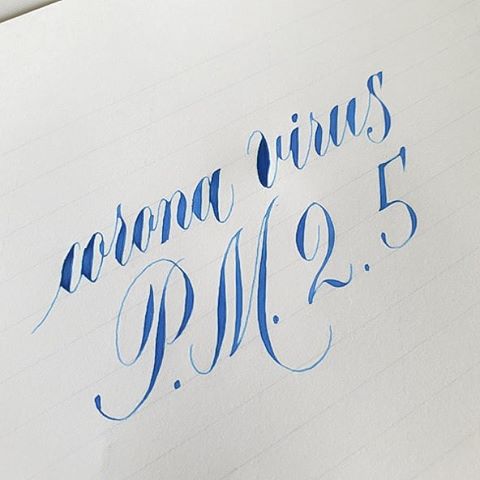 corona virus
P.M.2.5